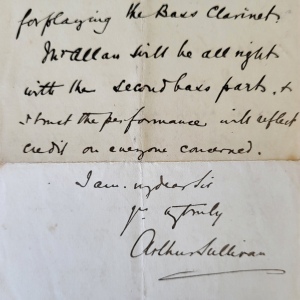 for playing the Bass Clarinet
Mr Allan will be all right
with the second bass parts, &
I trust the performance will reflect
credit on everyone concerned.
I am. my dear Sir
yrs vy truly
Arthur Sullivan